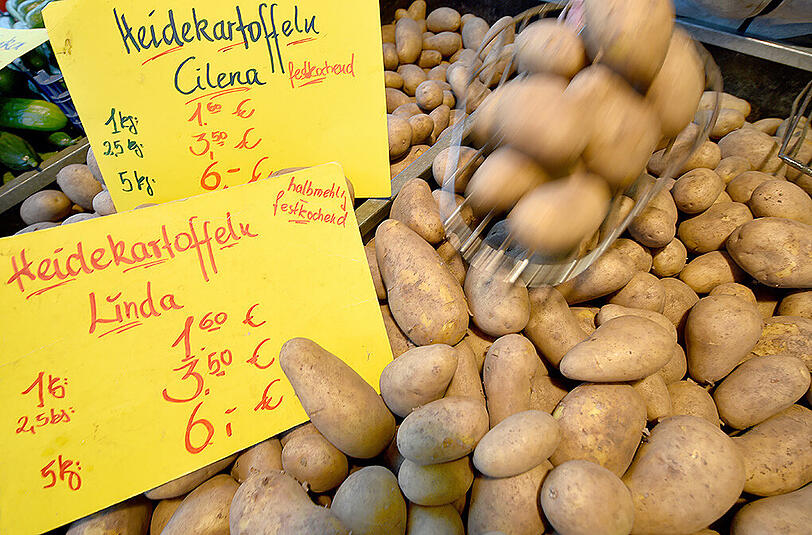 Heidekartoffeln
Cilena festkochend
1 kg: 1.60 €
2,5 kg. 3.50 €
5 kg: 6.- €
halbmehlig
festkochend
Heidekartoffeln
Linda
1 kg: 1.60 €
2,5 kg: 3.50 €
5 kg: 6.- €